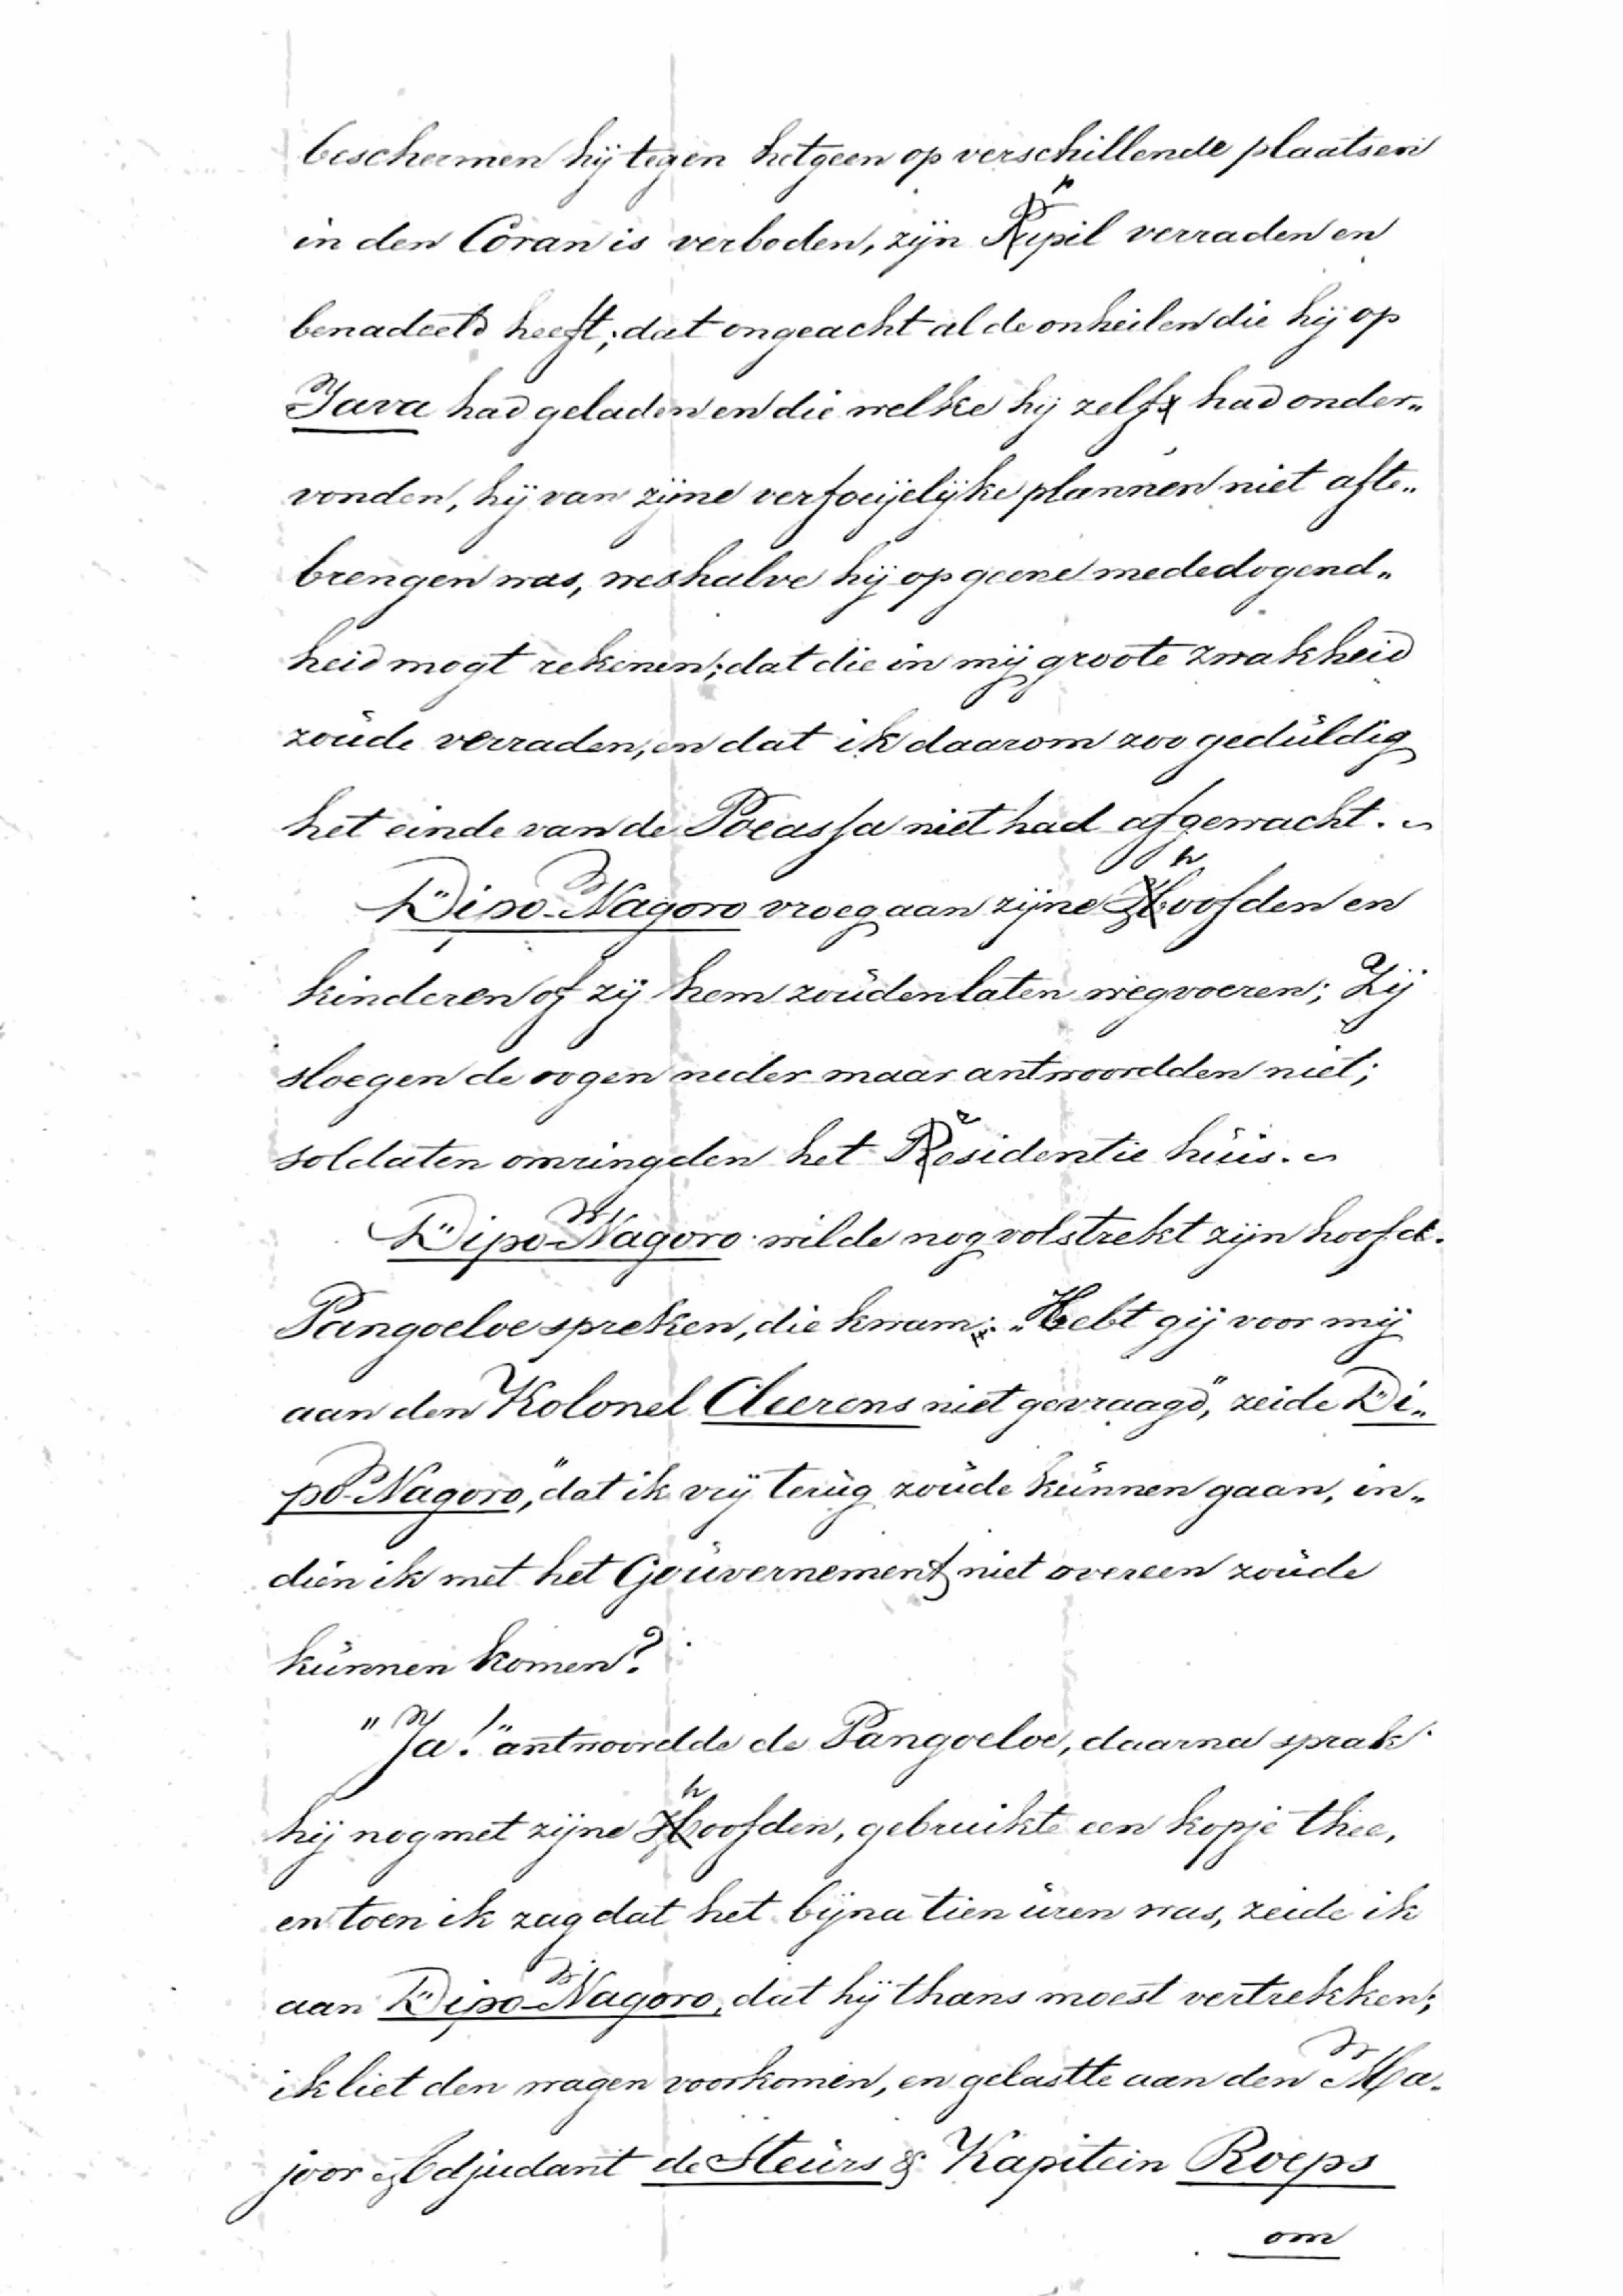 beschermen hij tegen hetgeen op verschillende plaatsen
in den Coran is verboden, zijn pupil verraden en
benadeeld heeft; dat ongeacht al de onheilen die hij op
Java had geladen en die welke hij zelf had onder„
vonden, hij van zijne verfoeijelijke plannen niet afte„
brengen was, weshalve hij op geene mededogend„
heid mogt rekenen; dat die in mij groote zwakheid
zoude verraden, en dat ik daarom zoo geduldig
het einde van de Poeassa niet had afgewacht.
Dipo-Nagoro vroeg aan zijne hoofden en
kinderen of zij hem zouden laten wegvoeren; Zij
sloegen de oogen neder maar antwoordden niet;
soldaten omringden het residentie huis.
Dipo-Nagoro wilde nog volstrekt zijn hoofd-
Pangoeloe spreken, die kwam: „Hebt gij voor mij
aan den Kolonel Cleerens niet gevraagd", zeide Di„
po-Nagoro, "dat ik vrij terug zoude kunnen gaan, in„
dien ik met het Gouvernement niet overeen zoude
kunnen komen?
"Ja!" antwoordde de Pangoeloe, daarna sprak
hij nog met zijne hoofden, gebruikte een kopje thee,
en toen ik zag dat het bijna tien uren was, zeide ik
aan Dipo-Nagoro, dat hij thans moest vertrekken;
ik liet den wagen voorkomen, en gelastte aan den Ma-
joor Adjudant de Steurs & Kapitein Roeps
om